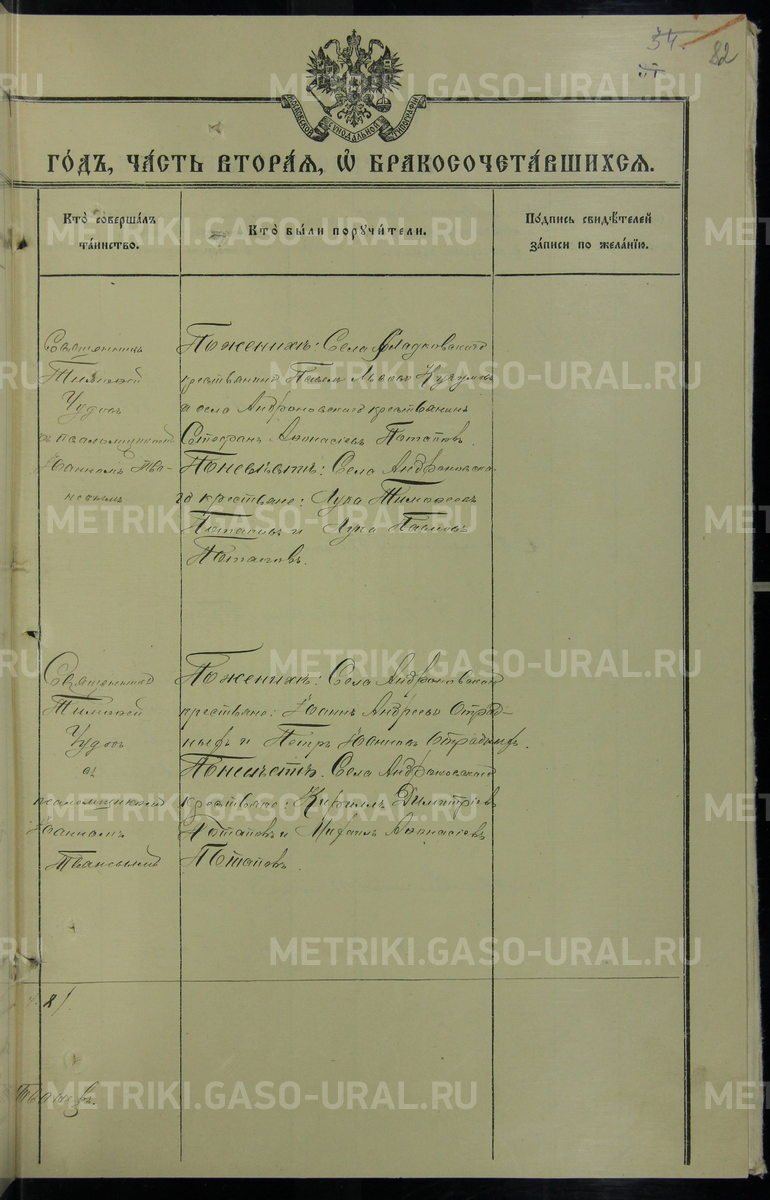 34.
82
МОСКОВСКОЙ СѴНОДАЛЬНОЙ ТИПОГРАФІИ
ГО́ДЪ, ЧА́СТЬ ВТОРА́Я, Ѽ БРАКОСОЧЕТА́ВШИХСЯ.
Кто̀ соверша́лъ та́инство.
Кто̀ бы́ли поручи́тели.
По́дпись свидѣ́телей за́писи по жела́нїю.
Священникъ
Тимофей
Чудов
с псаломщикомъ
Іоанномъ Ива-
новымъ
По женихѣ: Села Сладковскаго
крестьянинъ Павелъ Львовъ
и села Андроновскаго крестьянинъ
Стефанъ Аѳонасіевъ Потаповъ.
По невѣстѣ: Села Андроновска-
го крестьяне: Лука Тимофеевъ
Потаповъ и Лука Павловъ
Потаповъ.
Священникъ
Тимофей
Чудов
съ
псаломщикомъ
Іоанномъ
По женихѣ: Села Андроновскаго
крестьяне: Іоаннъ Андреевъ Отрад-
ныхъ и Петръ Іоанновъ Отрадныхъ.
По невѣстѣ: Села Андроновскаго
крестьяне: Кириллъ Димитріевъ
Потаповъ и Михаилъ Аѳонасіевъ
Потаповъ.
METRIKI.GASO-URAL.RU